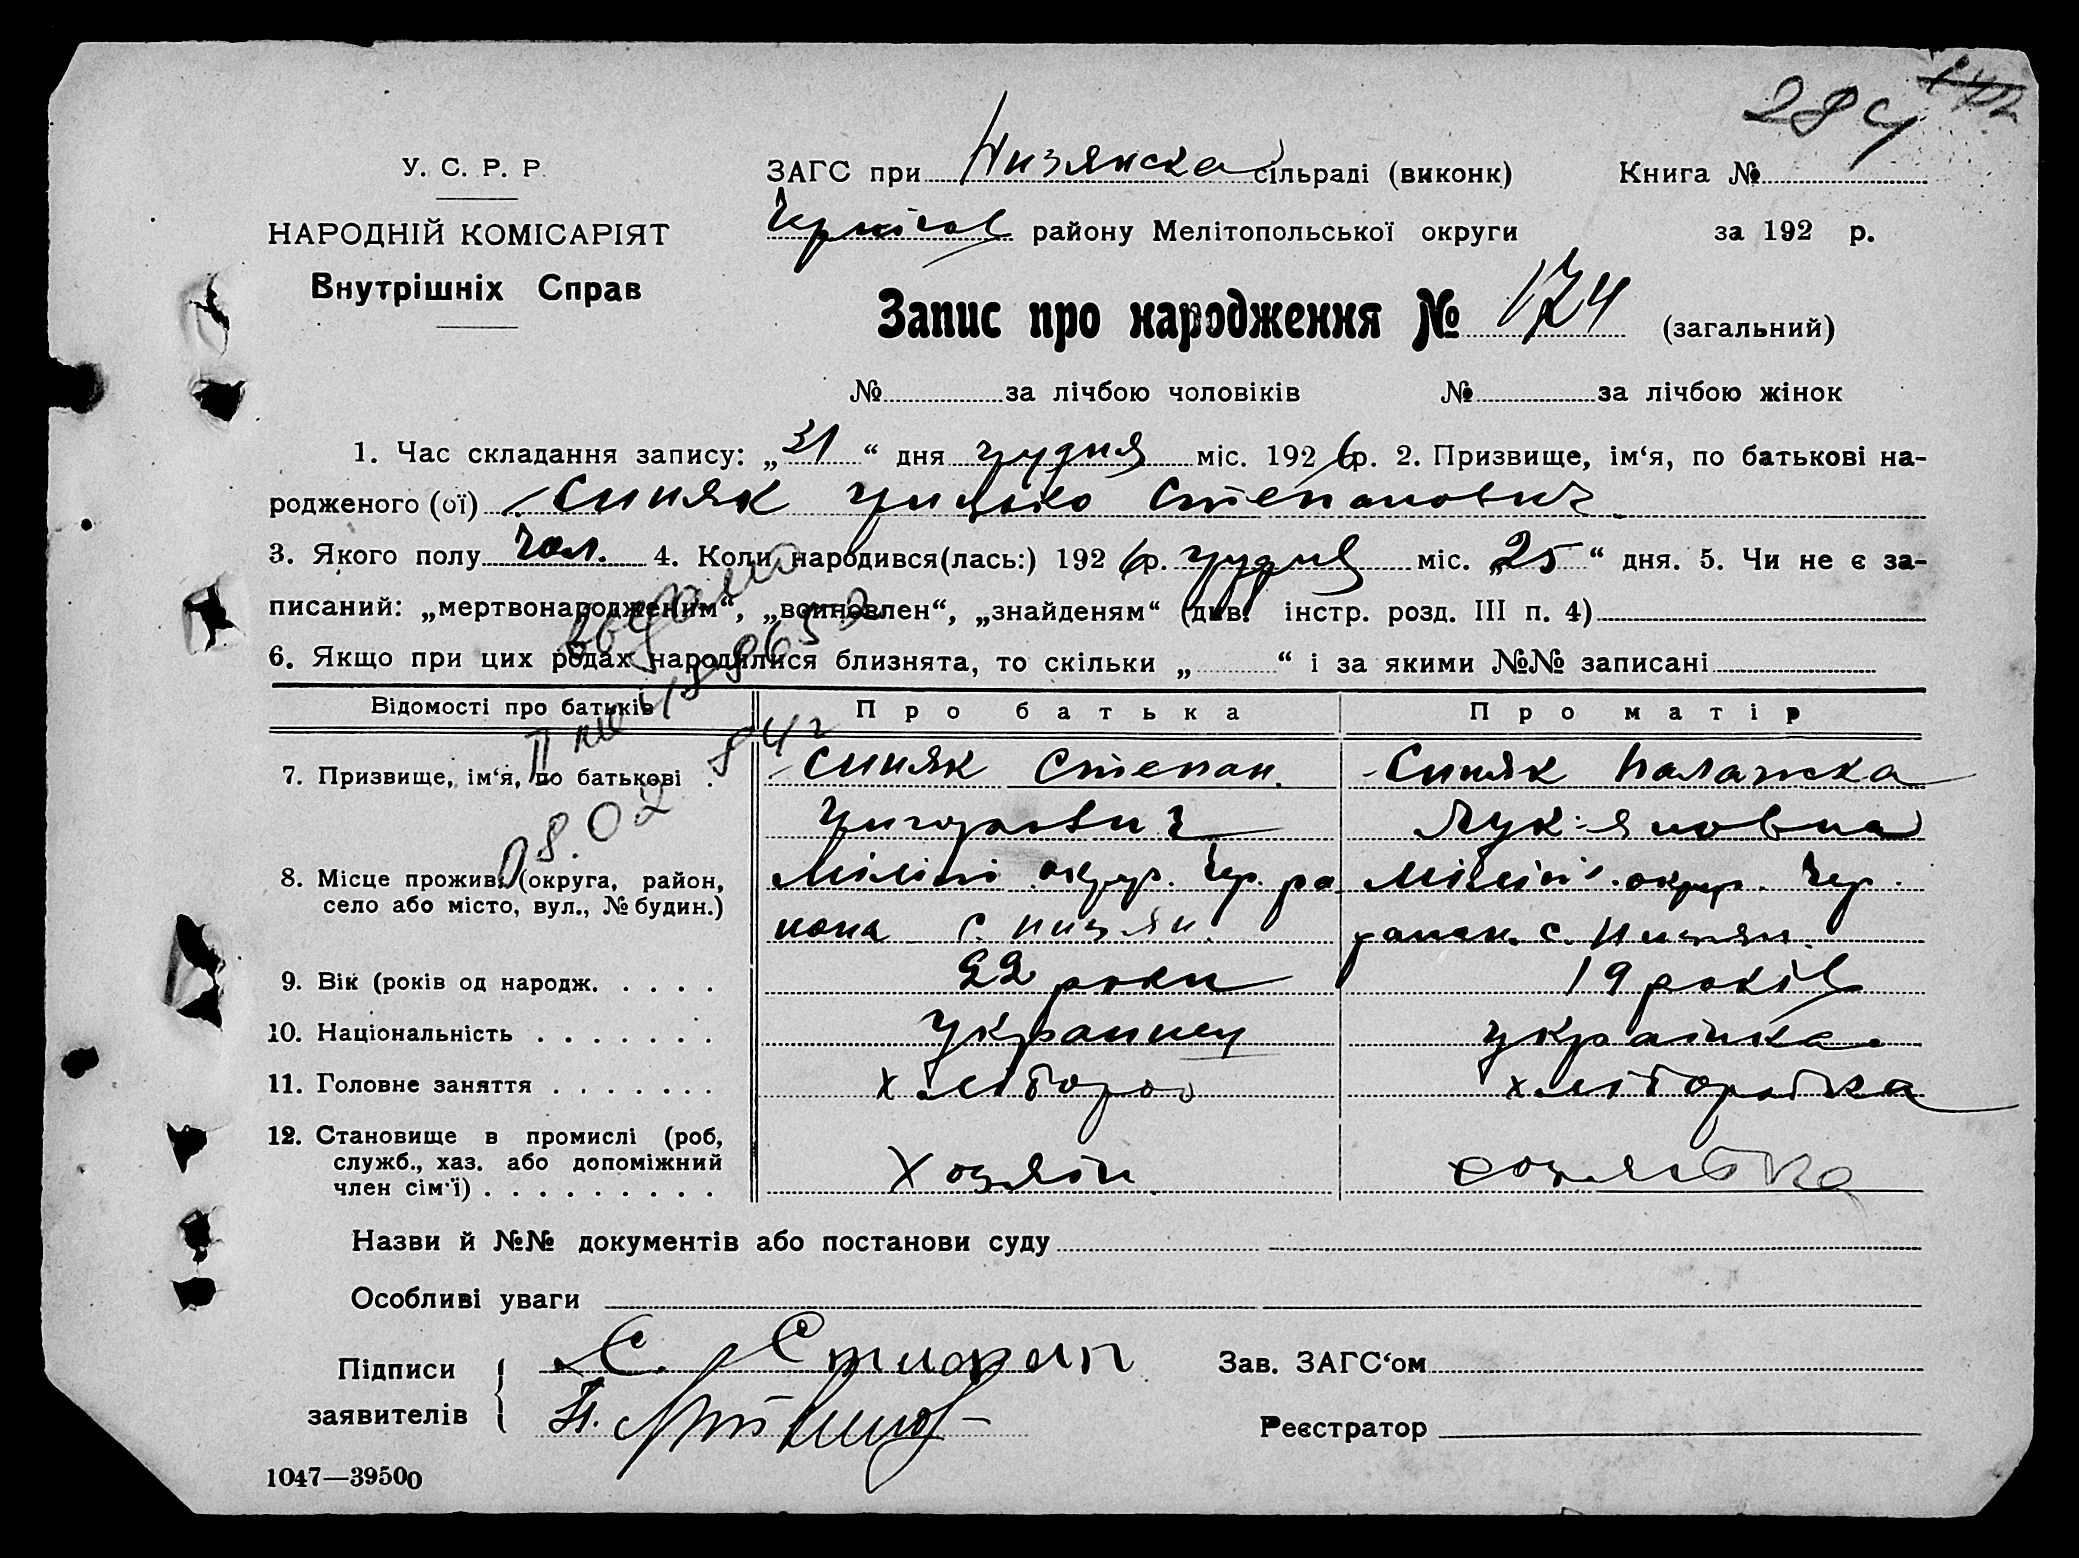 284
У. С. Р. Р.
НАРОДНІЙ КОМІСАРІЯТ
Внутрішніх Справ
ЗАГС при Низянска сільраді (виконк) Книга №
Черніговс району Мелітопольської округи за 192 р.
Запис про народження № 174 (загальний)
№ за лічбою чоловіків № за лічбою жінок
1. Час складання запису: „31“ дня грудня міс. 1926 р. 2. Призвище, ім‘я, по батькові на-
родженого (ої) Синяк Грицько Степанович
3. Якого полу чол. 4. Коли народився(лась:) 1926 р. грудня міс. „25“ дня. 5. Чи не є за-
писаний: „мертвонародженим“, „воиновлен“, „знайденям“ (див. інстр. розд. III п. 4)
6. Якщо при цих родах народилися близнята, то скільки „ “ і за якими №№ записані
Відомості про батьків Про батька Про матір
7. Призвище, ім‘я, по батькові . Синяк Степан. Синяк Палажка
Григорович Лук‘яновна
8. Місце прожив. (округа, район, Меліт окр. Чер. ра Меліт. окр. Чер.
село або місто, вул., № будин.) йона с. Низян. район. с. Низян.
9. Вік (років од народж. . . . . 22 роки 19 років
10. Національність . . . . . . . Украинец украінка
11. Головне заняття . . . . . . . хлібороб хліборобка
12. Становище в промислі (роб,
служб., хаз. або допоміжний Хозяін
член сім‘ї) . . . . . . . . .
Назви й №№ документів або постанови суду
Особливі уваги
Підписи С. Зав. ЗАГС‘ом
заявителів П. Реєстратор
1047—39500
выдано
08.02 84 г